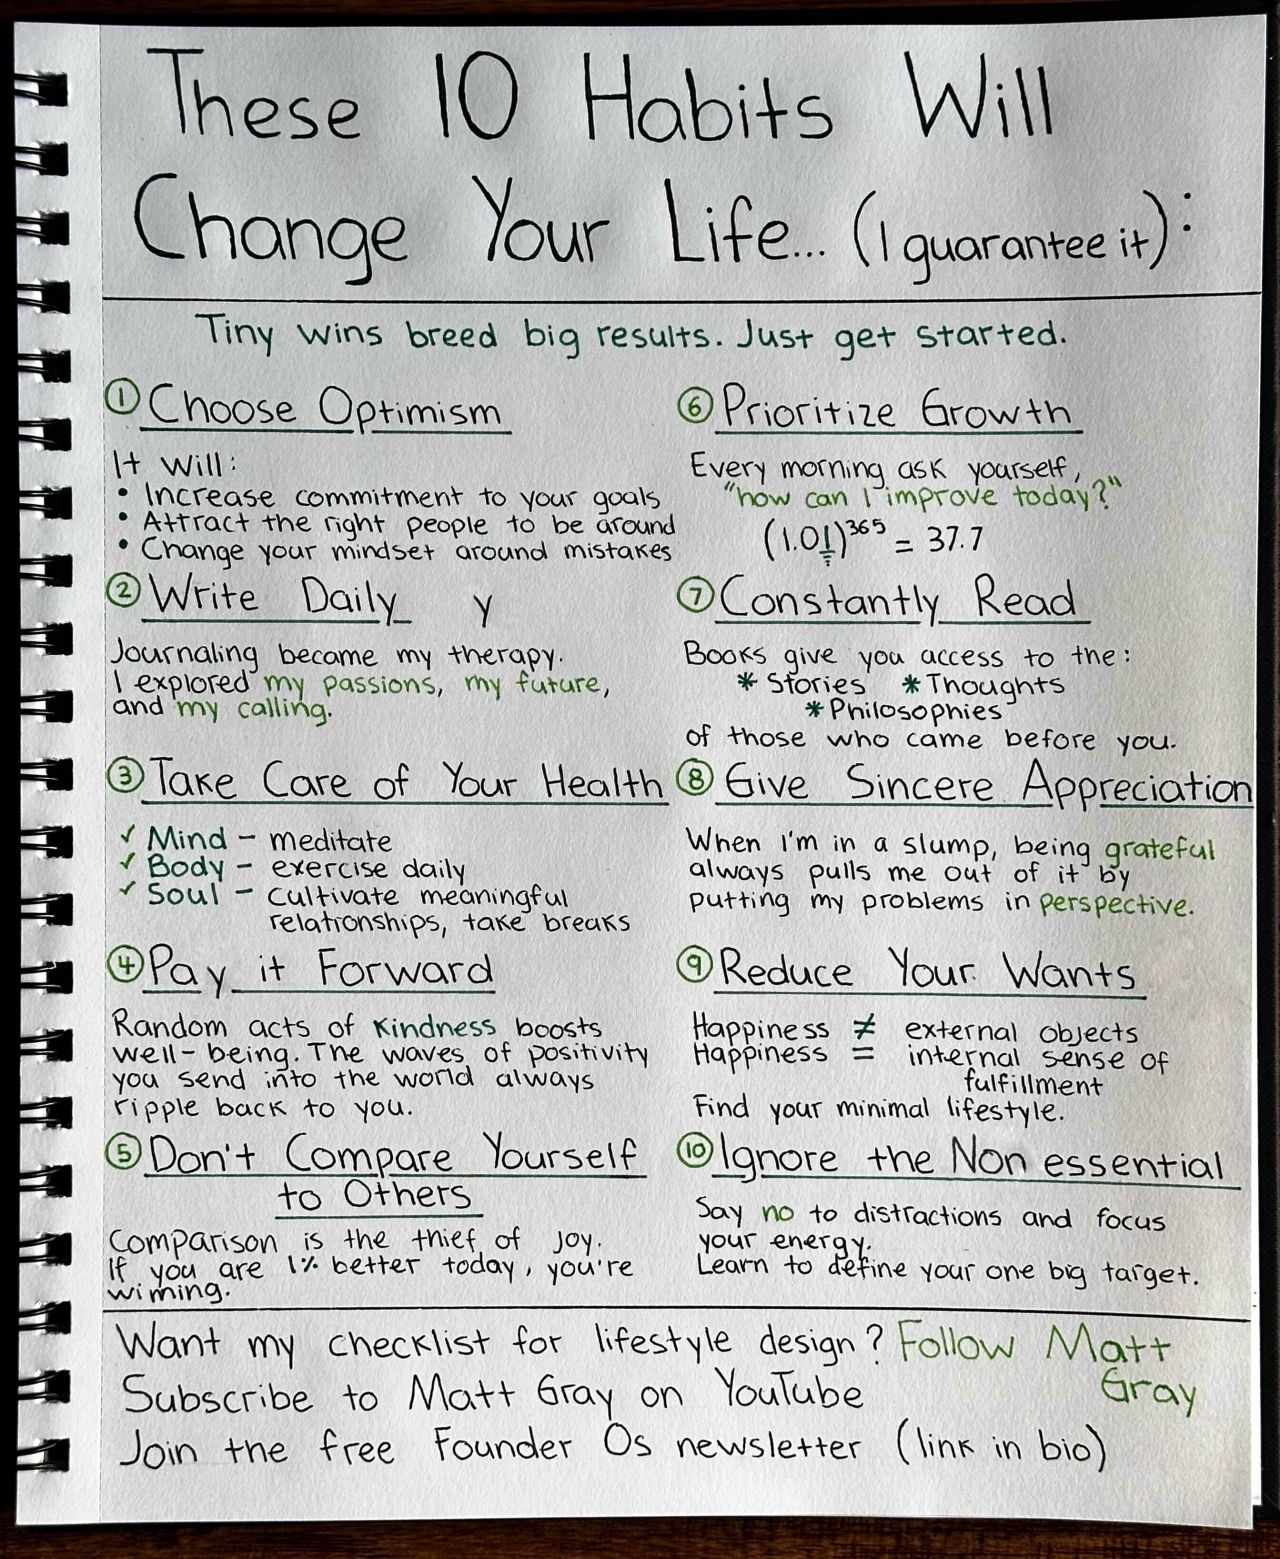 These 10 Habits Will
Change Your Life... (I guarantee it):
Tiny wins breed big results. Just get started.
① Choose Optimism
It will:
• Increase commitment to your goals
• Attract the right people to be around
• Change your mindset around mistakes
② Write Daily y
Journaling became my therapy.
I explored my passions, my future,
and my calling.
③ Take Care of Your Health
✓ Mind - meditate
✓ Body - exercise daily
✓ Soul - cultivate meaningful
relationships, take breaks
④ Pay it Forward
Random acts of kindness boosts
well-being. The waves of positivity
you send into the world always
ripple back to you.
⑤ Don't Compare Yourself
to Others
Comparison is the thief of joy.
If you are 1% better today, you're
winning.
⑥ Prioritize Growth
Every morning ask yourself,
"how can I improve today?"
(1.01)^365 = 37.7
⑦ Constantly Read
Books give you access to the:
* Stories * Thoughts
* Philosophies
of those who came before you.
⑧ Give Sincere Appreciation
When I'm in a slump, being grateful
always pulls me out of it by
putting my problems in perspective.
⑨ Reduce Your Wants
Happiness ≠ external objects
Happiness = internal sense of
fulfillment
Find your minimal lifestyle.
⑩ Ignore the Non essential
Say no to distractions and focus
your energy.
Learn to define your one big target.
Want my checklist for lifestyle design? Follow Matt
Gray
Subscribe to Matt Gray on YouTube
Join the free Founder Os newsletter (link in bio)